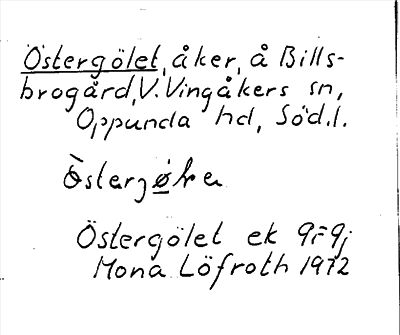 Östergölet, åker, å Bills-
brogård, V. Vingåkers sn,
Oppunda hd, Söd.l.
Östergölet ek
Mona Löfroth 1972